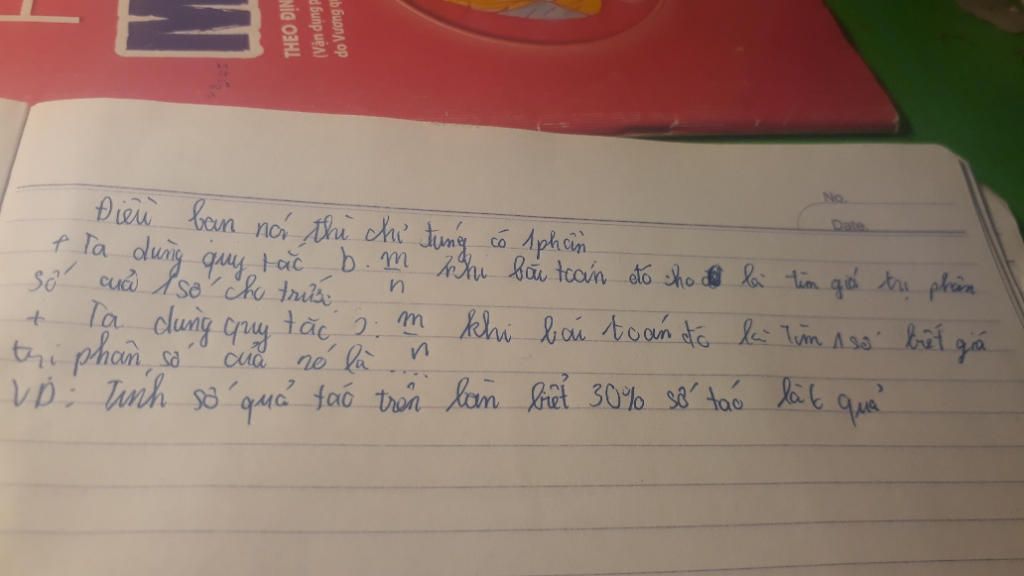 H
M
THEO ĐỊN
(Vận dụng p
do Vương qu
No.
Date.
Điều bạn nói thì chỉ tuńg có 1 phần
+ Ta dùng quy tắc b. m/n khi bài toán đó cho là tìm giá trị phân
số của 1 số cho trước
+ Ta dùng quy tắc : m/n khi bài toán đó là Tìm 1 số biết giá
trị phân số của nó là ....
VD: Tính số quả táo trên bàn biết 30% số táo là quả